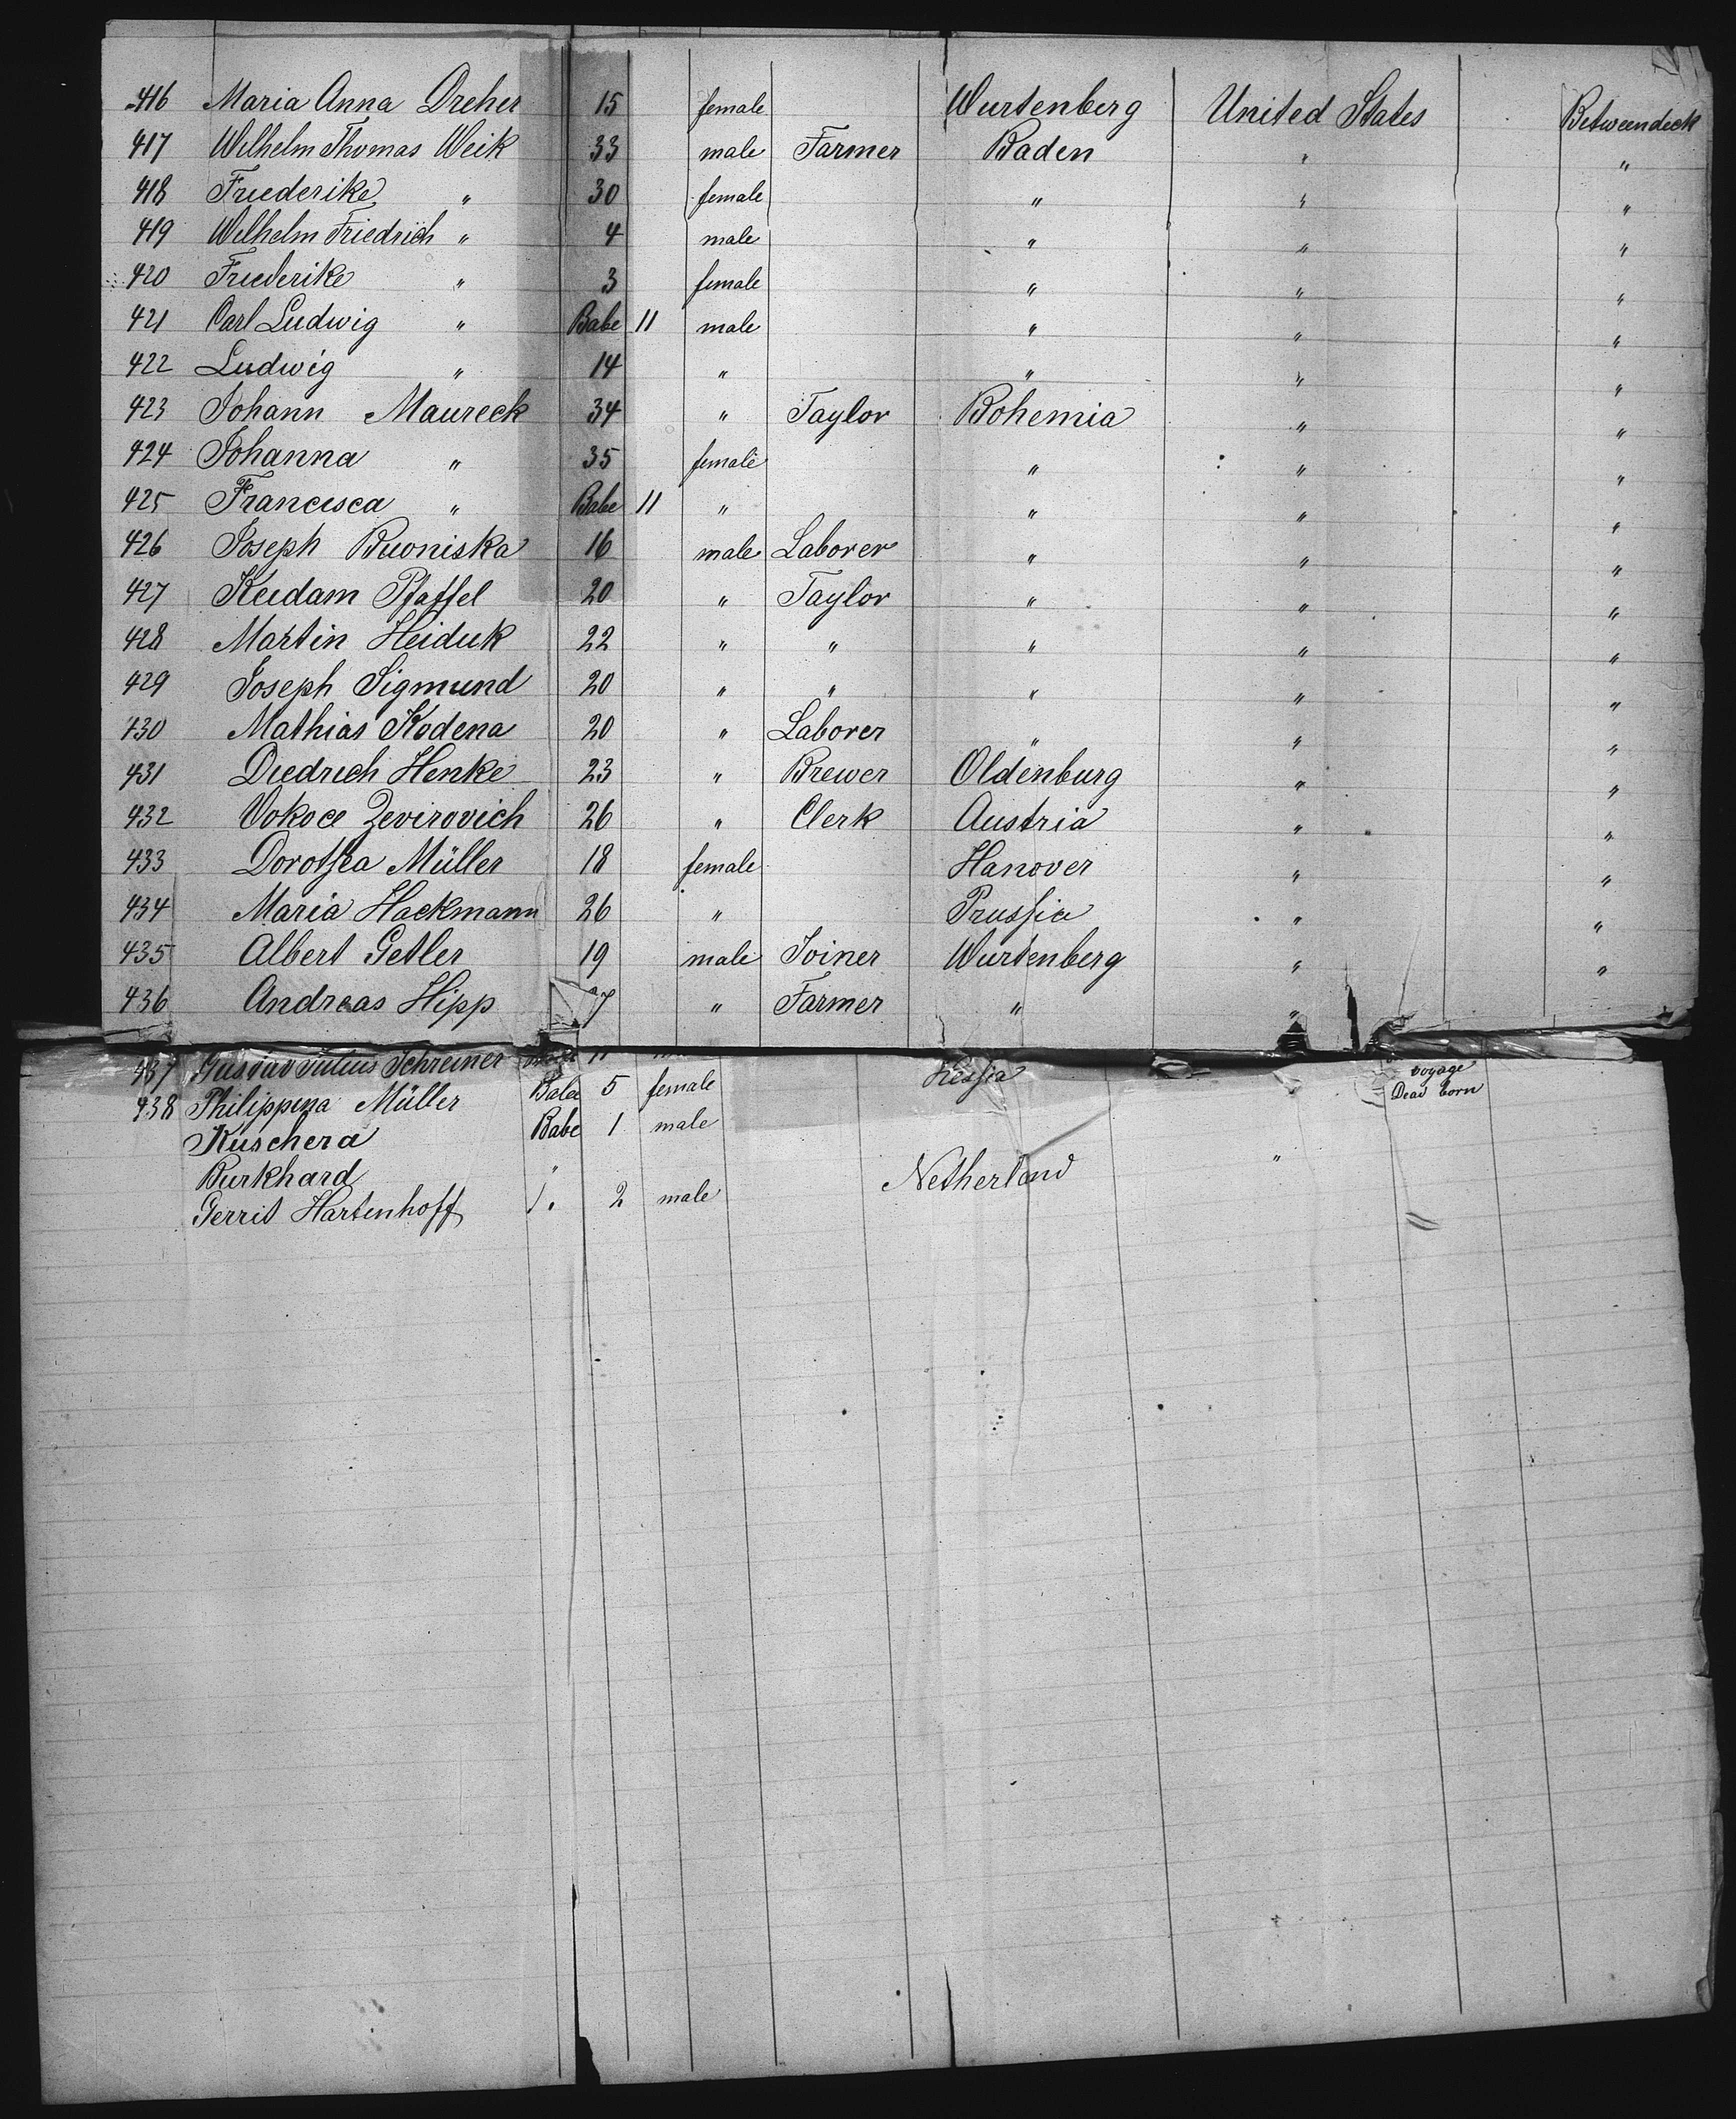 416 Maria Anna Dreher 15 female Wurtenberg United States Betweendeck
417 Wilhelm Thomas Weik 33 male Farmer Baden " "
418 Friederike " 30 female " " "
419 Wilhelm Friedrich " 4 male " " "
420 Friederike " 3 female " " "
421 Carl Ludwig " Babe 11 male " " "
422 Ludwig " 14 " " " "
423 Johann Maureck 34 " Taylor Bohemia " "
424 Johanna " 35 female " " "
425 Francisca " Babe 11 " " " "
426 Joseph Buoniska 16 male Laborer " " "
427 Keidam Pfaffel 20 " Taylor " " "
428 Martin Heiduk 22 " " " " "
429 Joseph Sigmund 20 " " " " "
430 Mathias Kodena 20 " Laborer " " "
431 Diedrich Henke 23 " Brewer Oldenburg " "
432 Vokoce Zevirovich 26 " Clerk Austria " "
433 Dorothea Müller 18 female Hanover " "
434 Maria Hackmann 26 " Prussia " "
435 Albert Getler 19 male Joiner Wurtenberg " "
436 Andreas Hipp 7 " Farmer " "
437 Gustav Julius Schreiner 11 voyage
438 Philippina Müller Babe 5 female Hessia Dead born
Kuschera Babe 1 male
Burkhard " "
Gerrit Hartenhoff 1. 2 male Netherland